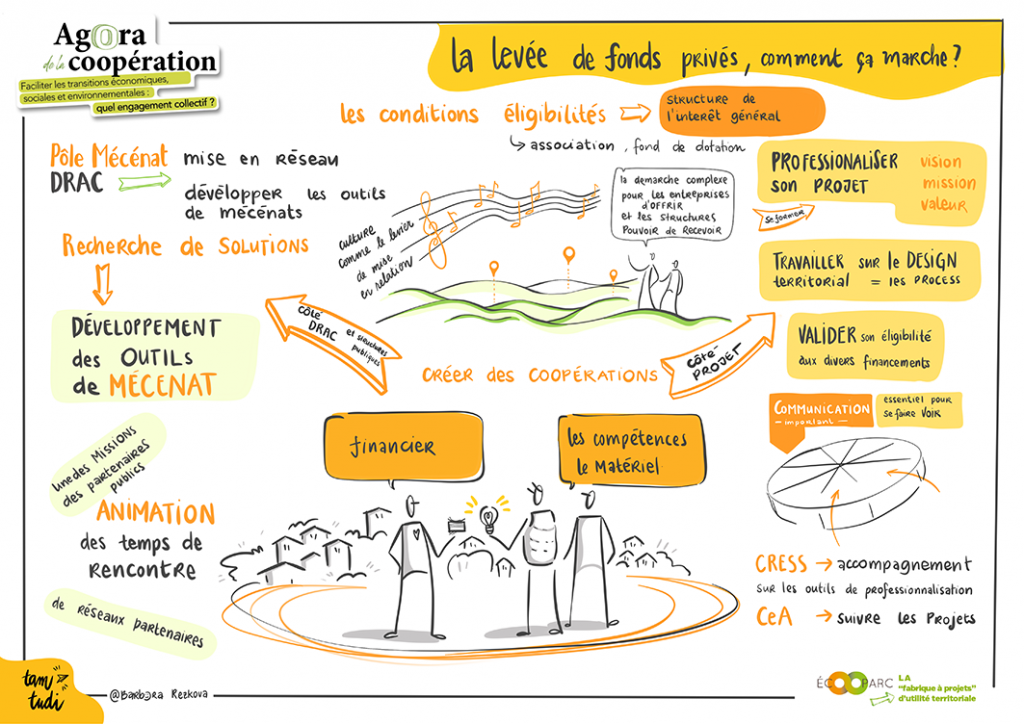 Agora
de la coopération
Faciliter les transitions économiques,
sociales et environnementales :
quel engagement collectif ?
la levée de fonds privés, comment ça marche ?
les conditions éligibilités
structure de
l'interêt général
association, fond de dotation
Pôle Mécénat mise en réseau
DRAC
développer les outils
de mécénats
Recherche de SOLUTIONS
DÉVELOPPEMENT
des OUTILS
de MÉCENAT
une des Missions
des partenaires
publics
ANIMATION
des temps de
rencontre
de réseaux partenaires
culture
comme le levier
de mise
en relation
la demarche complexe
pour les entreprises
d'offrir
et les structures
Pouvoir de recevoir
côté
DRAC
et structures
publiques
CRÉER des COOPÉRATIONS
côté
PROJET
financier
les compétences
le Matériel
se former
PROFESSIONALISER
son PROJET
vision
mission
valeur
TRAVAILLER sur le DESIGN
territorial = les process
VALIDER son éligibilité
aux divers financements
COMMUNICATION
— important —
essentiel pour
se faire VOIR
CRESS → accompagnement
sur les outils de professionnalisation
CeA → suivre les Projets
tam
tudi
@Barbora Rezkova
ÉCOOPARC
LA
"fabrique à projets"
d'utilité territoriale